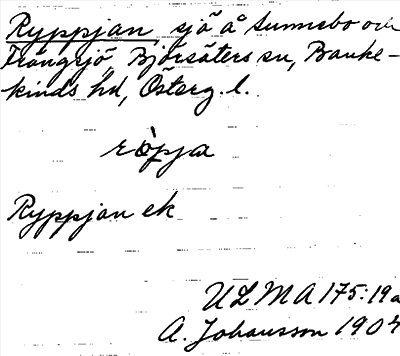 Ryppjan sjö å Sunnebo och
Trängsjö, Björsäters sn, Banke-
kinds hd, Österg. l.
röpja
Ryppjan ek
ULMA 175:19a
A. Johansson 1904